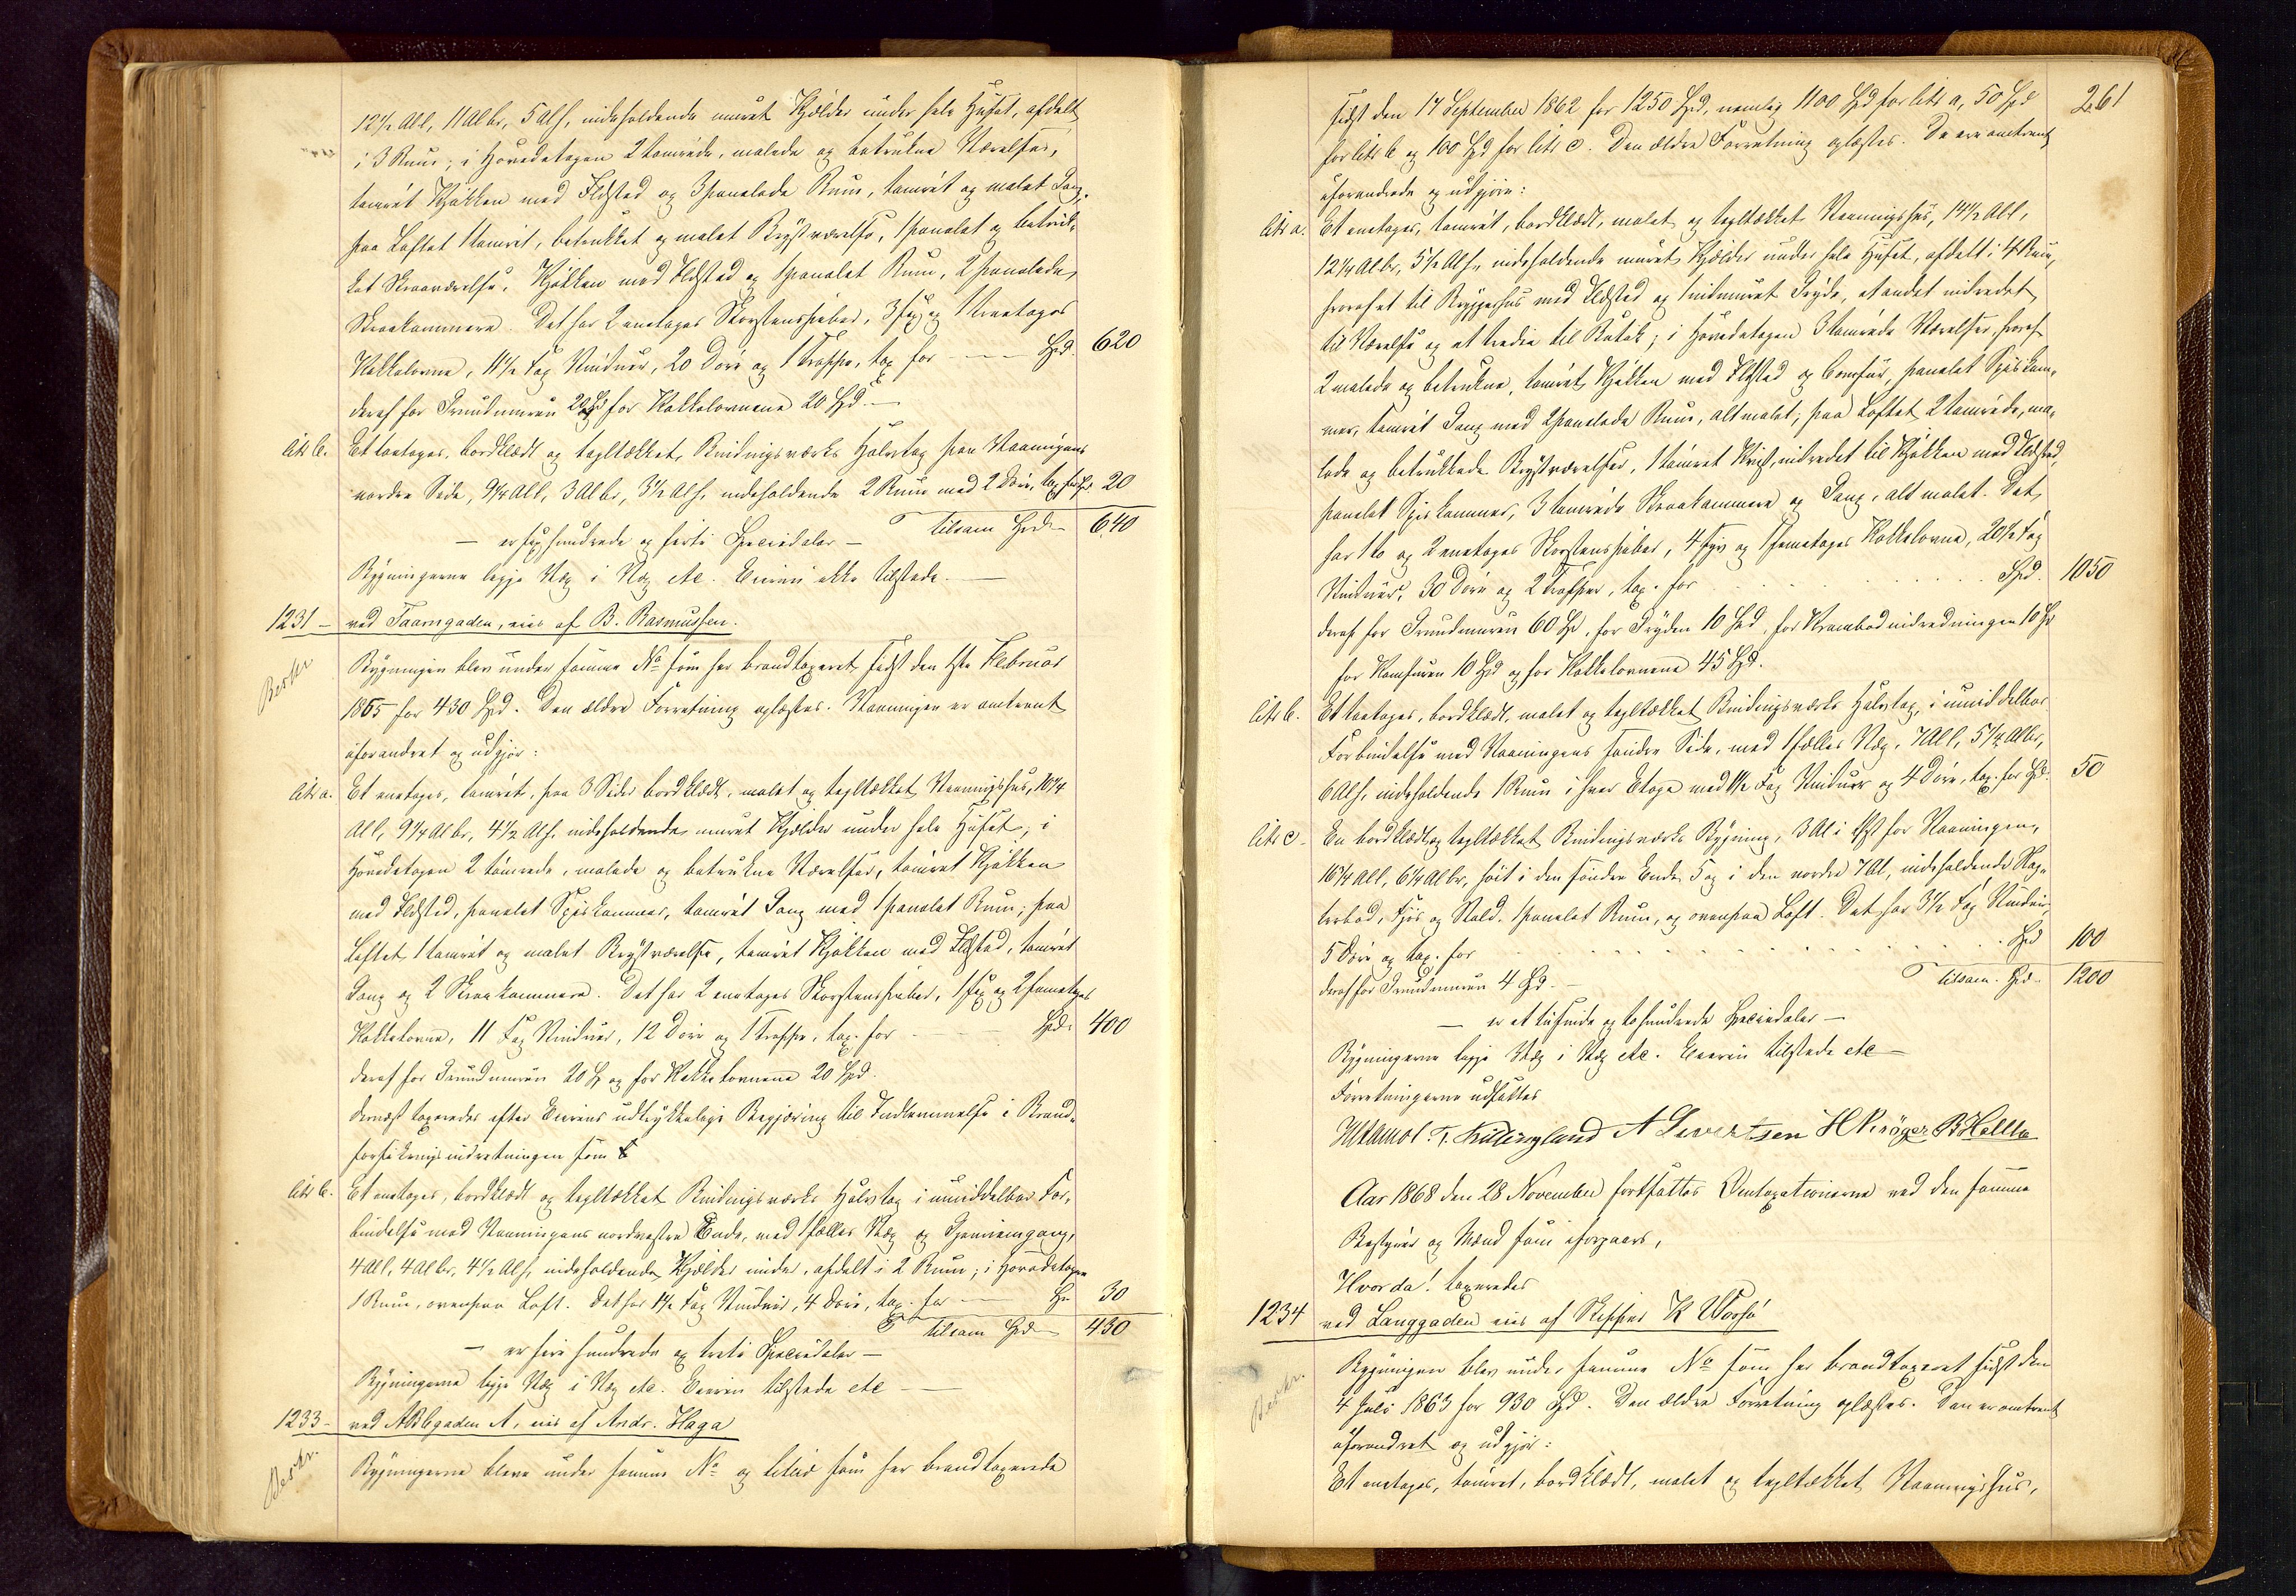 12½ Al l, 11 Al br, 5 Al h, indeholdende muret Kjelder under hele Huset, afdelt
i 3 Rum; i Hovedetagen 2 tømrede, malede og betrukne Værelser,
tømret Kjøkken med Ildsted og 3 panelede Rum, tømret og malet Gang;
paa Loftet 1 tømret, betrukket og malet Brystværelse, 1 panelet og betruk-
ket Skraaværelse, Kjøkken med Ildsted og 1 panelet Rum, 2 panelede
Skraakammere. Det har 2 enetages Skorstenspiber, 3 og 1 treetages
Kakkelovne, 11½ Fag Vinduer, 20 Døre og 1 Trappe, tax for Spd. 620
deraf for Grundmuren 20 Spd for Kakkelovnene 20 Spd.
Litr b. Et toetages, bordklædt og tegltækket Bindingsværks Halvtag paa Vaaningens
nordre Side, 9¼ Al l, 3 Al br, 3½ Al h, indeholdende 2 Rum med 2 Døre, tax for Sp. 20
tilsam Spd 640
– er sexhundrede og førti Speciedaler –
Bygningerne ligge Væg i Væg etc. Eieren ikke tilstede.
1231 – ved Taarngaden, eies af B. Rasmussen.
Beskr
Bygningen blev under samme No som her brandtaxeret sidst den 1ste Februar
1865 for 430 Spd. Den ældre Forretning oplæstes. Vaaningen er omtrent
uforandret og udgjør:
Litr a. Et enetages, tømret, paa 3 Sider bordklædt, malet og tegltækket Vaaningshus, 10¼
Al l, 9¼ Al br, 4½ Al h, indeholdende muret Kjelder under hele Huset; i
Hovedetagen 2 tømrede, malede og betrukne Værelser, tømret Kjøkken
med Ildsted, panelet Spiskammer, tømret Gang med 1 panelet Rum; paa
Loftet 1 tømret og malet Brystværelse, tømret Kjøkken med Ildsted, tømret
Gang og 2 Skraakammere. Det har 2 enetages Skorstenspiber, 1 og 2 femetages
Kakkelovne, 11 Fag Vinduer, 12 Døre og 1 Trappe, tax. for Spd. 400
deraf for Grundmuren 20 Sp og for Kakkelovnene 20 Spd.
dernæst taxeredes efter Eierens udtrykkelige Begjæring til Indlemmelse i Brand-
forsikringsindretningen som
Litr b. Et enetages, bordklædt og tegltækket Bindingsværks Halvtag i umiddelbar For-
bindelse med Vaaningens nordvestre Ende, med fælles Væg og Gjennemgang,
4 Al l, 4 Al br, 4½ Al h, indeholdende Kjelder under, afdelt i 2 Rum; i Hovedetagen
1 Rum, ovenpaa Loft. Det har 1½ Fag Vinduer, 4 Døre, tax. for Sp 30
tilsam Spd 430
– er fire hundrede og treti Speciedaler –
Bygningerne ligge Væg i Væg etc. Eieren tilstede etc –
1233 – ved ABCgaden A, eies af Andr. Haga
Beskr.
Bygningerne bleve under samme No og Litra som her brandtaxerede
261
sidst den 17 September 1862 for 1250 Spd, nemlig 1100 Spd for Litr a, 50 Spd
for Litr b og 100 Spd for Litr c. Den ældre Forretning oplæstes. De ere omtrent
uforandrede og udgjøre:
Litr a. Et enetages, tømret, bordklædt, malet og tegltækket Vaaningshus, 14½ Al l,
12¼ Al br, 5½ Al h, indeholdende muret Kjelder under hele Huset, afdelt i 4 Rum,
hvoraf et til Bryggerhus med Ildsted og 1 indmuret Gryde, et andet indredet
til Værelse og et tredie til Butik; i Hovedetagen 3 tømrede Værelser, hvoraf
2 malede og betrukne, tømret Kjøkken med Ildsted og Comfur, panelet Spiskam-
mer, tømret Gang med 2 panelede Rum, alt malet; paa Loftet 2 tømrede, ma-
lede og betrukkede Brystværelser, 1 tømret Kvist, indredet til Kjøkken med Ildsted,
panelet Spiskammer, 3 tømrede Skraakammere og Gang, alt malet. Det
har 1 to og 2 enetages Skorstenspiber, 4 og 1 femetages Kakkelovne, 20½ Fag
Vinduer, 30 Døre og 2 Trapper, tax. for Spd. 1050
deraf for Grundmuren 60 Sp, for Gryden 10 Spd, for Krambodindredningen 10 Sp
for Komfuren 10 Spd og for Kakkelovnene 45 Spd.
Litr b. Et toetages, bordklædt, malet og tegltækket Bindingsværks Halvtag, i umiddelbar
Forbindelse med Vaaningens søndre Side, med fælles Væg, 7 Al l, 5¼ Al br,
6 Al h, indeholdende 1 Rum i hver Etage med 1½ Fag Vinduer og 4 Døre, tax. for Sp. 50
Litr c. En bordklædt og tegltækket Bindingsværks Bygning, 3 Al i Øst for Vaaningen,
16¼ Al l, 6¼ Al br, høit i den søndre Ende 5 og i den nordre 7 Al, indeholdende
Fjøs og Stald. 1 panelet Rum, og ovenpaa Loft. Det har 3½ Fag Vinduer,
5 Døre og tax. for Spd 100
deraf for Grundmuren 4 Spd. – tilsam. Spd. 1200
– er et tusinde og tohundrede Speciedaler –
Bygningerne ligge Væg i Væg etc. Eieren tilstede etc –
Forretningerne udsattes
T. Killingland A Sivertsen H Krüger B Hella
Aar 1868 den 28 November fortsattes Omtaxationerne ved den samme
Bestyrer og Mænd som iforgaars,
Hvorda! taxeredes
1234 ved Langgaden eies af Skipper K Worsø
Beskr.
Bygningen blev under samme No som her brandtaxeret sidst den
4 Juli 1863 for 930 Spd. Den ældre Forretning oplæstes. Den er omtrent
uforandret og udgjør:
Et enetages, tømret, bordklædt, malet og tegltækket Vaaningshus,